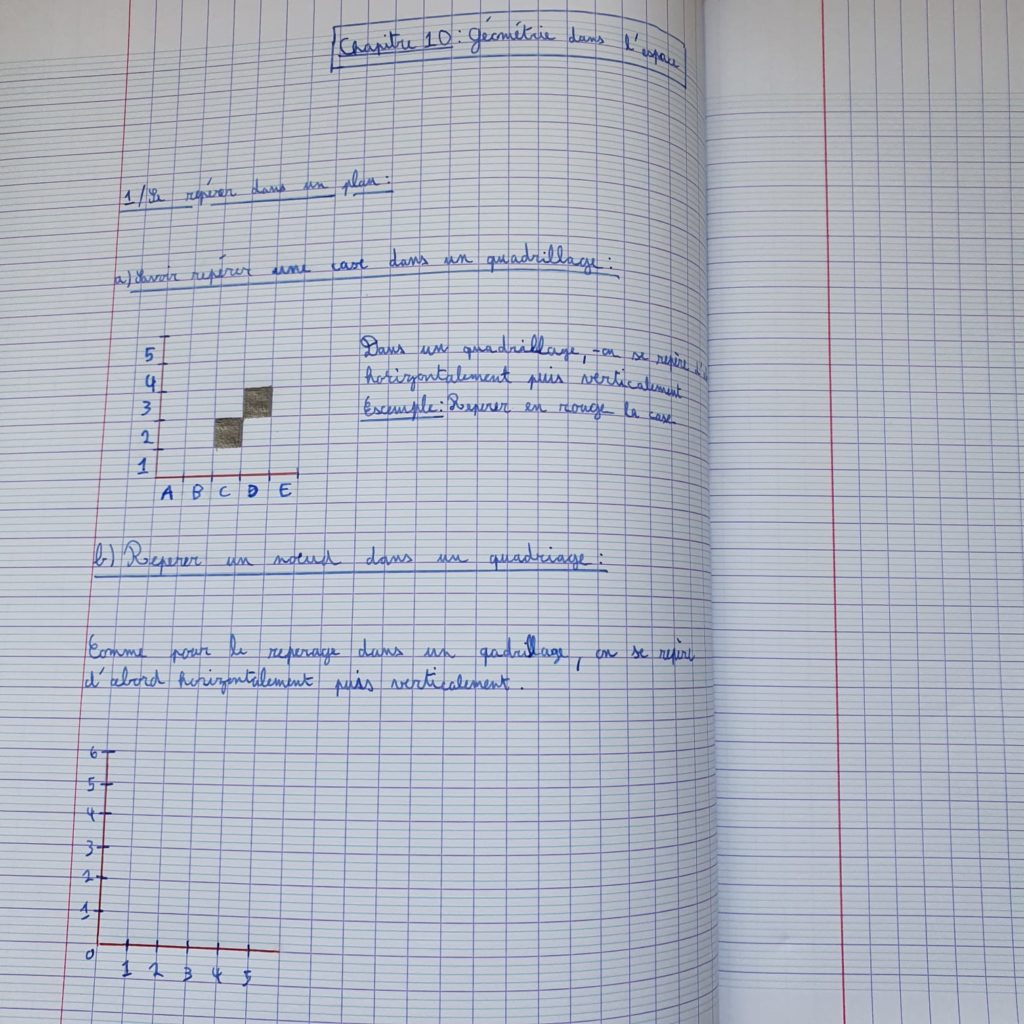 Chapitre 10 : Géométrie dans l'espace
1/ Se repérer dans un plan :
a) Savoir repérer une case dans un quadrillage :
Dans un quadrillage, on se repère
horizontalement puis verticalement
Exemple : Reperer en rouge la case
5
4
3
2
1
A B C D E
b) Reperer un noeud dans un quadriage :
Comme pour le reperage dans un qadrillage, on se repère
d'abord horizontalement puis verticalement.
6
5
4
3
2
1
0
1 2 3 4 5